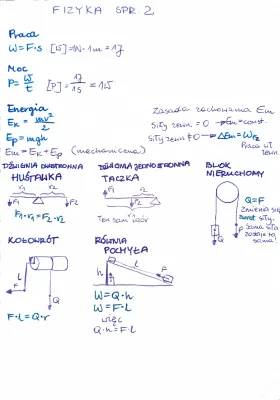 FIZYKA SPR 2
Praca
W=F·s [W]=1N·1m=1J
Moc
P=W/t [P]=1J/1s=1W
Energia
Ek=mv²/2
Ep=mgh
Em=Ek+Ep (mechaniczna)
Zasada zachowania Em
siły zewn.=0 → Em=const.
siły zewn ≠0 → ΔEm=WFz
Praca sił zewn.
DŹWIGNIA DWUSTRONNA
HUŚTAWKA
r1 r2
F1 F2
F1·r1=F2·r2
DŹWIGNIA JEDNOSTRONNA
TACZKA
F1 r2
F2
Ten sam wzór
BLOK
NIERUCHOMY
Q=F
Zmienia się
zwrot siły.
sama!
Q F
KOŁOWRÓT
r
l
F
Q
F·l=Q·r
RÓWNIA
POCHYŁA
l F
h
Q
W=Q·h
W=F·l
więc
Q·h=F·l